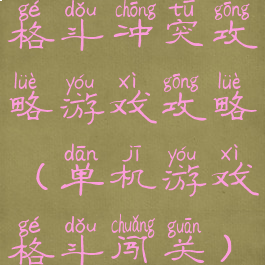 gé dǒu chōng tū gōng
格斗冲突攻
lüè yóu xì gōng lüè
略游戏攻略
dān jī yóu xì
（单机游戏
gé dǒu chuǎng guān
格斗闯关）